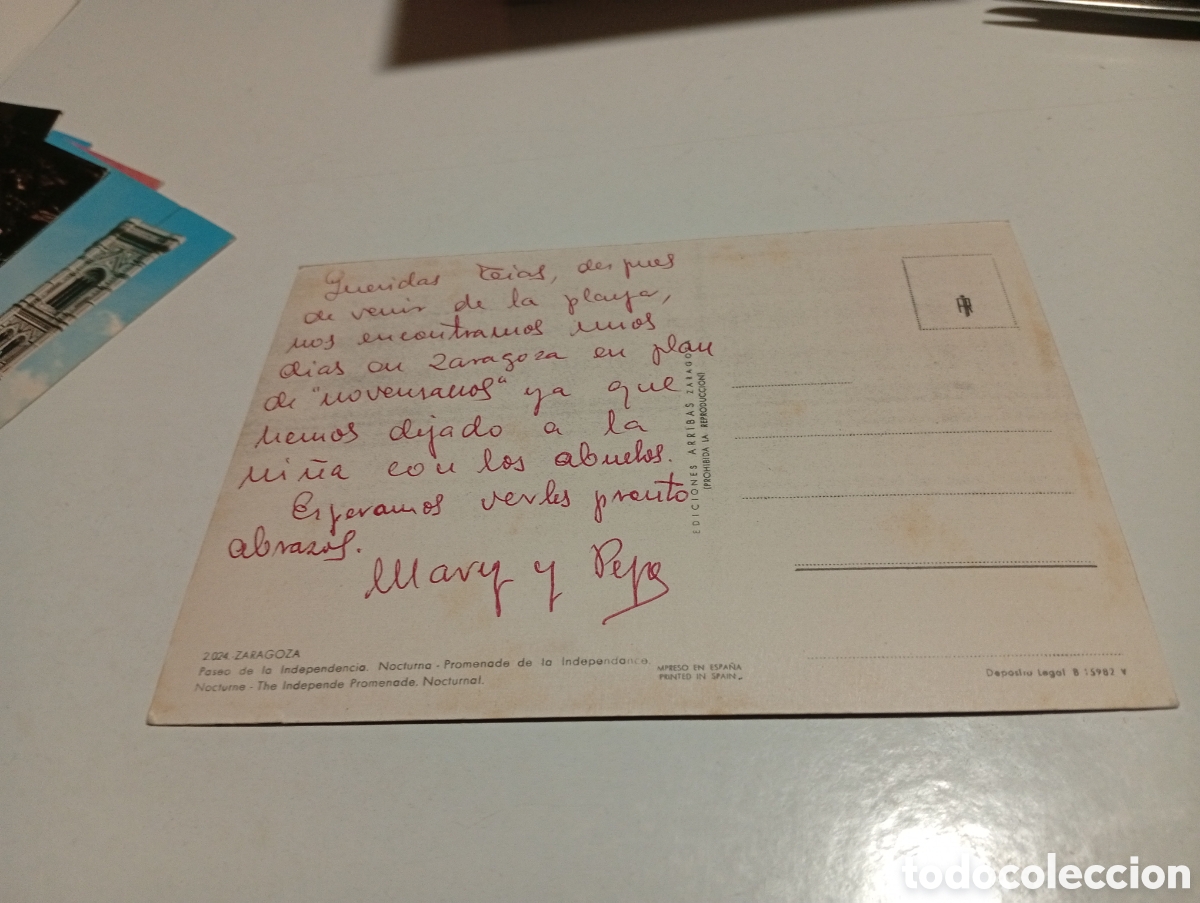 Queridas teias, despues
de venir de la playa,
nos encontramos unos
dias en Zaragoza en plan
de "novensanos" ya que
hemos dejado a la
niña con los abuelos.
Esperamos verles pronto
abrazos.
Mary y Pepe
EDICIONES ARRIBAS ZARAGO
(PROHIBIDA LA REPRODUCCION)
2.024. ZARAGOZA
Paseo de la Independencia. Nocturna - Promenade de la Independance.
Nocturne - The Independe Promenade. Nocturnal.
IMPRESO EN ESPAÑA
PRINTED IN SPAIN
Deposito Legal B 15982 V
todocoleccion